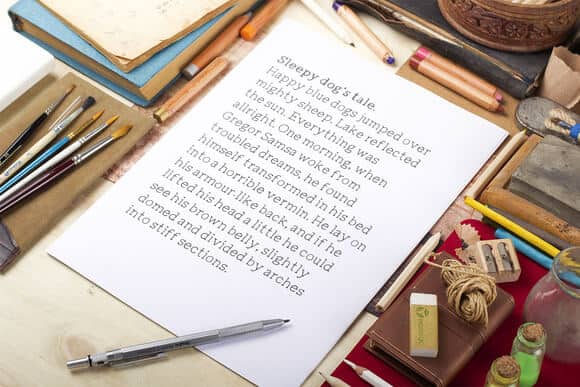 Sleepy dog's tale.
Happy blue dogs jumped over
mighty sheep. Lake reflected
the sun. Everything was
allright. One morning, when
Gregor Samsa woke from
troubled dreams, he found
himself transformed in his bed
into a horrible vermin. He lay on
his armour-like back, and if he
lifted his head a little he could
see his brown belly, slightly
domed and divided by arches
into stiff sections.